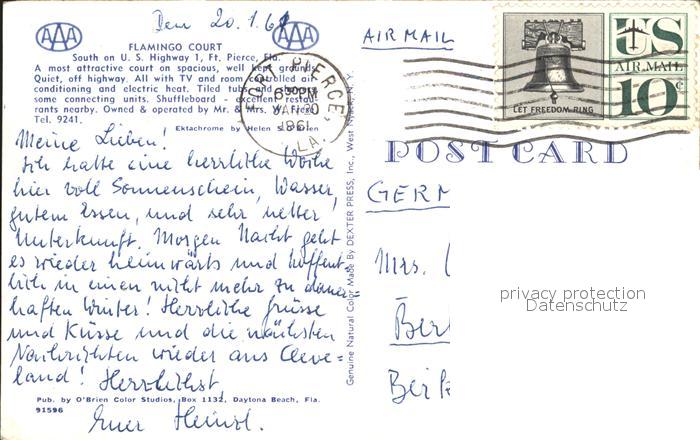 Den 20.1.61
AAA
AAA
FLAMINGO COURT
South on U. S. Highway 1, Ft. Pierce, Fla.
A most attractive court on spacious, well kept grounds.
Quiet, off highway. All with TV and room controlled air
conditioning and electric heat. Tiled tubs and showers
some connecting units. Shuffleboard - excellent restau-
rants nearby. Owned & operated by Mr. & Mrs. W. Fiero
Tel. 9241.
Ektachrome by Helen S. O'Brien
Meine Lieben!
Ich hatte eine herrliche Woche
hier voll Sonnenschein, Wasser,
gutem Essen, und sehr netter
Unterkunft. Morgen Nacht geht
es wieder heimwärts und hoffent-
lich in einen nicht mehr zu dauer-
haften Winter! Herzliche Grüsse
und Küsse und die nächsten
Nachrichten wieder aus Cleve=
land! Herzlichst,
Pub. by O'Brien Color Studios, Box 1132, Daytona Beach, Fla.
91596
Euer Heinzl.
FORT PIERCE,
6 30 PM
JAN 20
1961
FLA.
Genuine Natural Color Made By DEXTER PRESS, Inc., West Nyack, N. Y.
AIR MAIL
LET FREEDOM RING
US
AIR MAIL
10¢
POST CARD
GERM
Mrs. (
Ber
Bei
privacy protection
Datenschutz